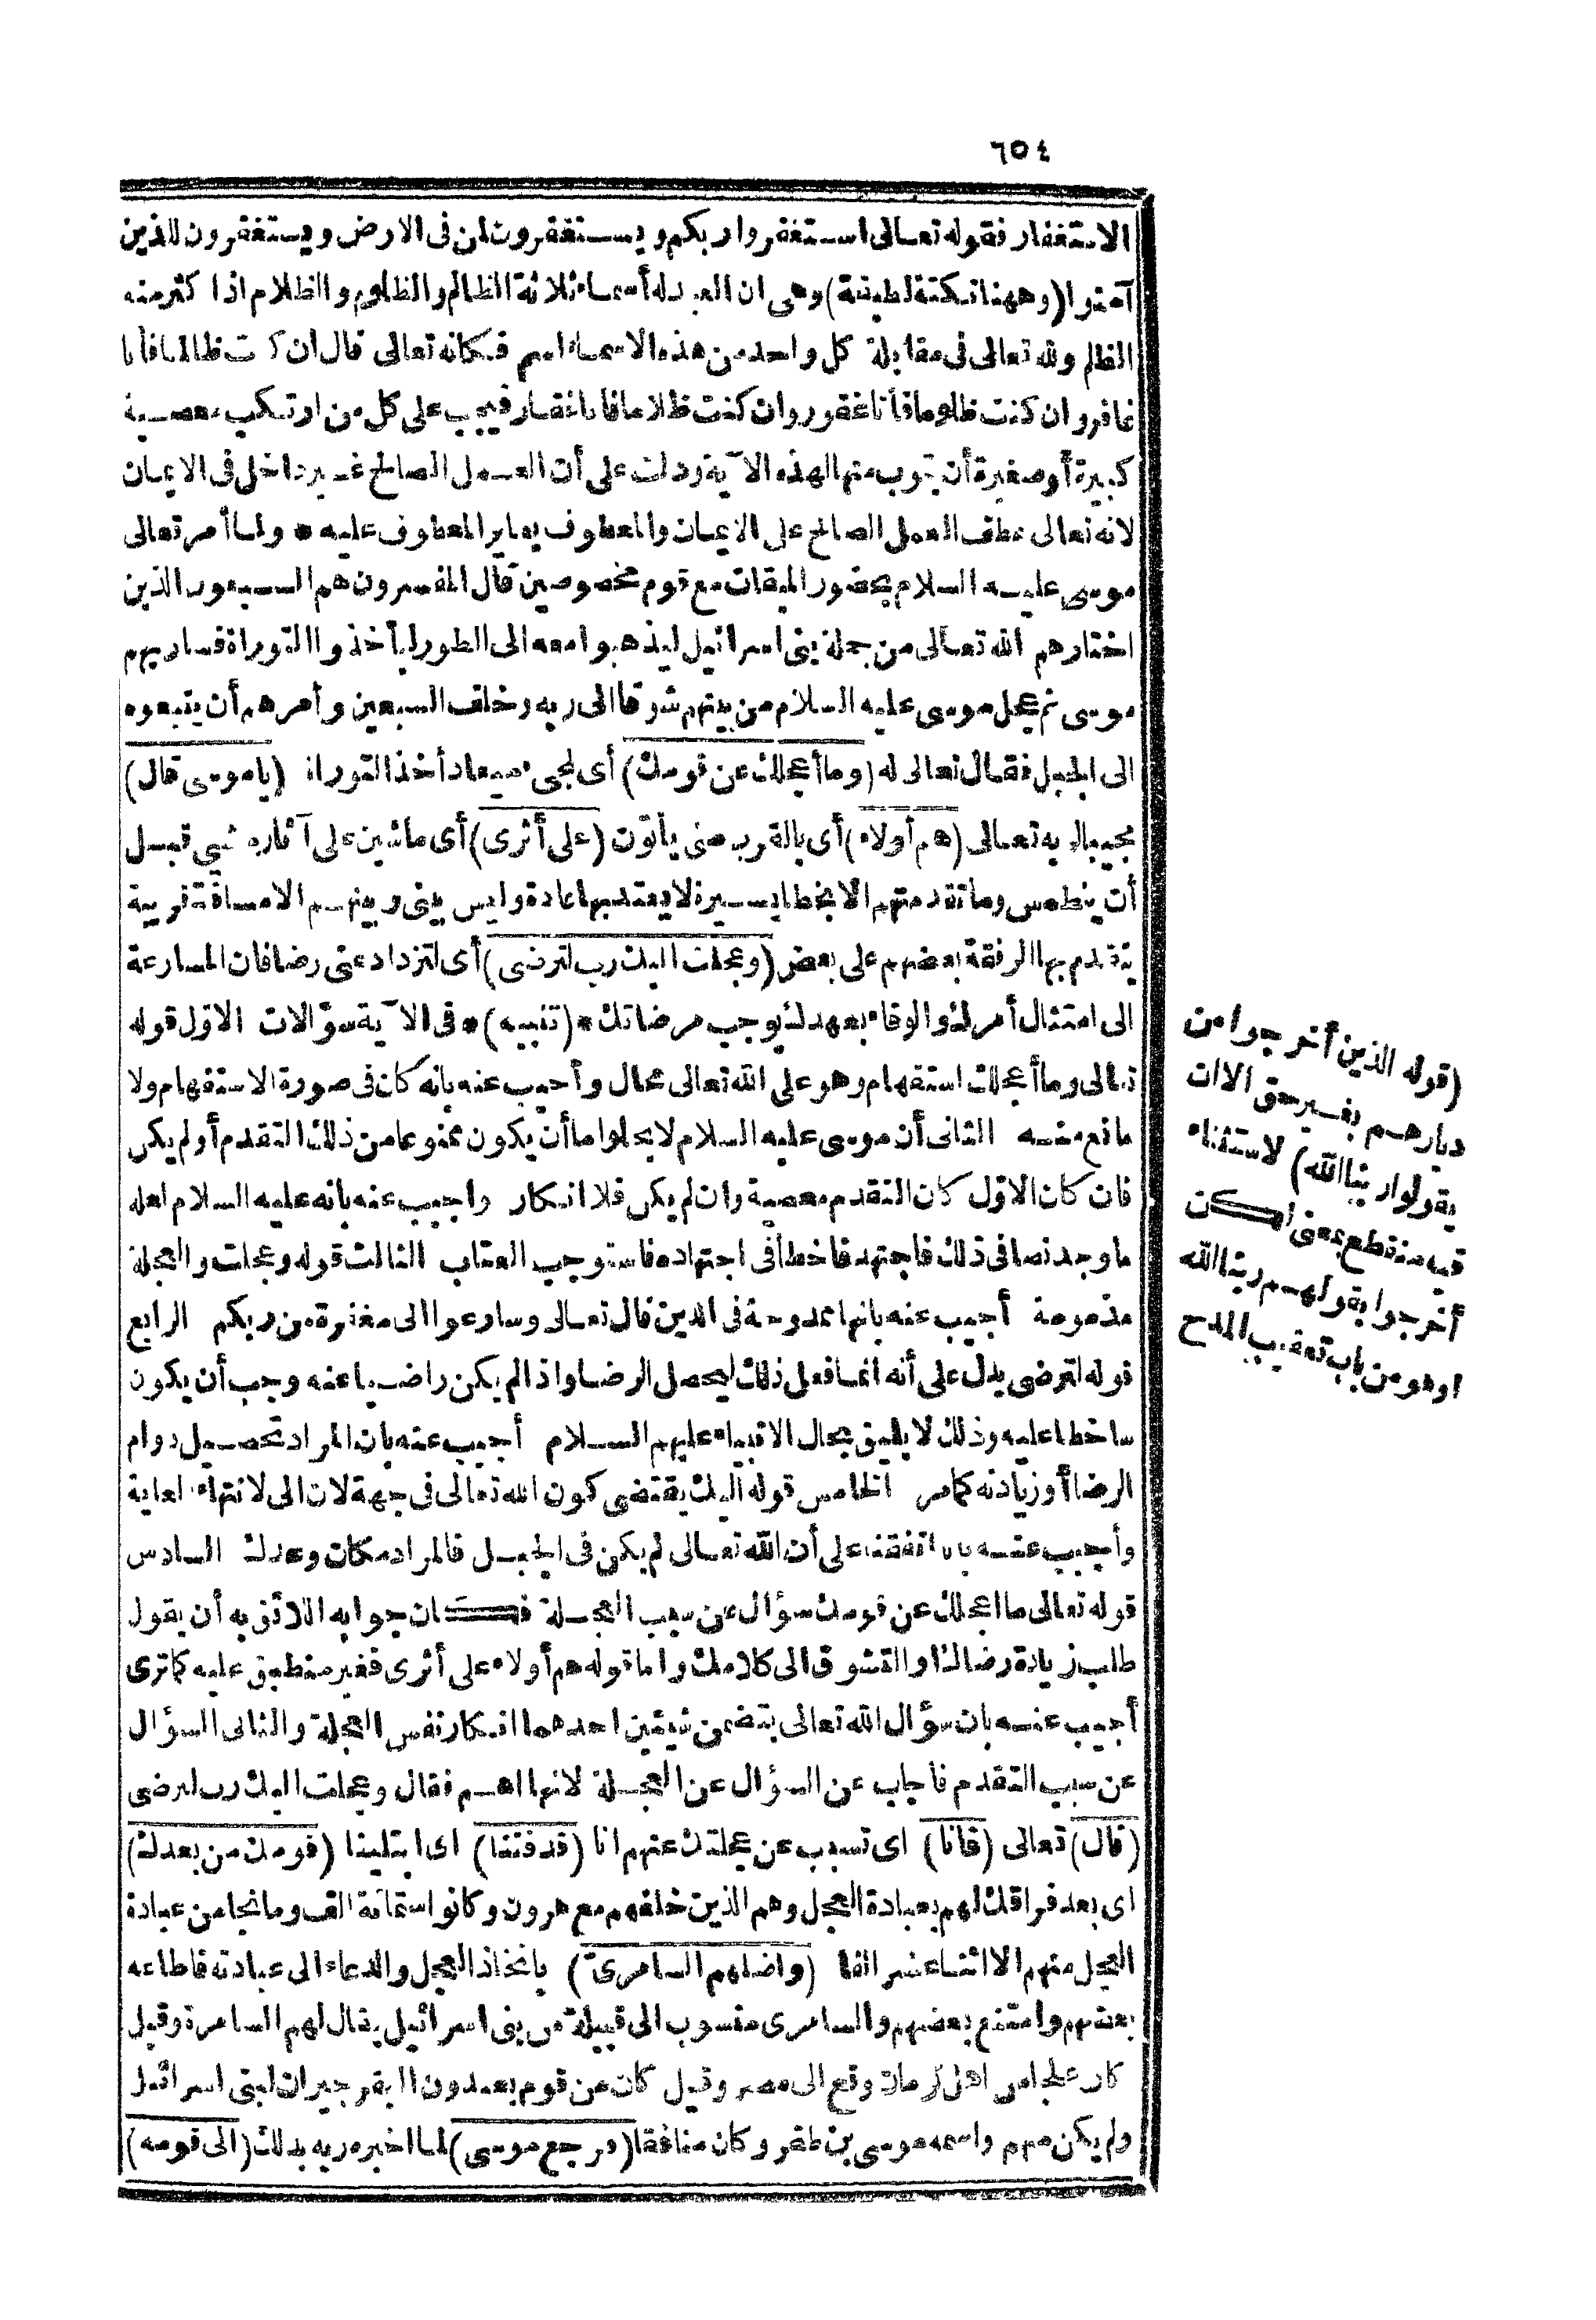 ٦٥٤
الاستغفار فقوله تعالى استغفروا ربكم ويستغفرون لمن فى الارض ويستغفرون للذين
آمنوا (وههنا نكتة لطيفة) وهى ان العبد له أسماء ثلاثة الظالم والظلوم والظلام اذا كثر منه
الظلم ولله تعالى فى مقابلة كل واحد من هذه الاسماء اسم فكانه تعالى قال ان كنت ظالما فأنا
غافر وان كنت ظلوما فأنا غفور وان كنت ظلاما فانا غفار فيجب على كل من ارتكب معصية
كبيرة أو صغيرة أن يتوب منها لهذه الآية ودلت على أن العمل الصالح غير داخل فى الايمان
لانه تعالى عطف العمل الصالح على الايمان والمعطوف يغاير المعطوف عليه * ولما أمر تعالى
موسى عليه السلام بحضور الميقات مع قوم مخصوصين قال المفسرون هم السبعون الذين
اختارهم الله تعالى من جملة بنى اسرائيل ليذهبوا معه الى الطور ليأخذوا التوراة فسار بهم
موسى ثم عجل موسى عليه السلام من بينهم شوقا الى ربه وخلف السبعين وأمرهم أن يتبعوه
الى الجبل فقال تعالى له (وما أعجلك عن قومك) أى لمجىء ميعاد أخذ التوراة (ياموسى قال)
مجيبا لربه تعالى (هم أولاء) أى بالقرب منى يأتون (على أثرى) أى ماشين على آثار مشيى قبل
أن ينطمس وما تقدمتهم الا بخطا يسيرة لا يعتد بها عادة وليس بينى وبينهم الا مسافة قريبة
يتقدم بها الرفقة بعضهم على بعض (وعجلت اليك رب لترضى) أى لتزداد عنى رضا فان المسارعة
الى امتثال أمرك والوفاء بعهدك يوجب مرضاتك * (تنبيه) * فى الآية سؤالات الاول قوله
تعالى وما أعجلك استفهام وهو على الله تعالى محال وأجيب عنه بانه كان فى صورة الاستفهام ولا
مانع منه الثانى أن موسى عليه السلام لا يخلو اما أن يكون ممنوعا من ذلك التقدم أو لم يكن
فان كان الاول كان التقدم معصية وان لم يكن فلا انكار واجيب عنه بانه عليه السلام لعله
ما وجد نصا فى ذلك فاجتهد فاخطأ فى اجتهاده فاستوجب العتاب الثالث قوله وعجلت والعجلة
مذمومة أجيب عنه بانها ممدوحة فى الدين قال تعالى وسارعوا الى مغفرة من ربكم الرابع
قوله لترضى يدل على أنه انما فعل ذلك ليحصل الرضا واذا لم يكن راضيا عنه وجب أن يكون
ساخطا عليه وذلك لا يليق بحال الانبياء عليهم السلام أجيب عنه بان المراد تحصيل دوام
الرضا أو زيادته كما مر الخامس قوله اليك يقتضى كون الله تعالى فى جهة لان الى لانتهاء الغاية
وأجيب عنه بانا اتفقنا على أن الله تعالى لم يكن فى الجبل فالمراد مكان وعدك السادس
قوله تعالى ما اعجلك عن قومك سؤال عن سبب العجلة فكان جوابه اللائق به أن يقول
طلب زيادة رضاك او التشوق الى كلامك واما قوله هم أولاء على أثرى فغير منطبق عليه كما ترى
أجيب عنه بان سؤال الله تعالى يتضمن شيئين احدهما انكار نفس العجلة والثانى السؤال
عن سبب التقدم فاجاب عن السؤال عن العجلة لانها اهم فقال وعجلت اليك رب لترضى
(قال) تعالى (فانا) اى تسبب عن عجلتك عنهم انا (قد فتنا) اى ابتلينا (قومك من بعدك)
اى بعد فراقك لهم بعبادة العجل وهم الذين خلفهم مع هرون وكانوا ستمائة الف وما نجا من عبادة
العجل منهم الا اثنا عشر الفا (واضلهم السامرى) باتخاذ العجل والدعاء الى عبادته فاطاعه
بعضهم وامتنع بعضهم والسامرى منسوب الى قبيلة من بنى اسرائيل يقال لهم السامرة وقيل
كان علجا من اهل كرمان وقع الى مصر وقيل كان من قوم يعبدون البقر جيران لبنى اسرائيل
ولم يكن منهم واسمه موسى بن ظفر وكان منافقا (فرجع موسى) لما اخبره ربه بذلك (الى قومه)
(قوله الذين أخرجوا من
ديارهم بغير حق الا ان
يقولوا ربنا الله) لاستثناء
فيه منقطع بمعنى لكن
أخرجوا بقولهم ربنا الله
او هو من باب تعقيب المدح